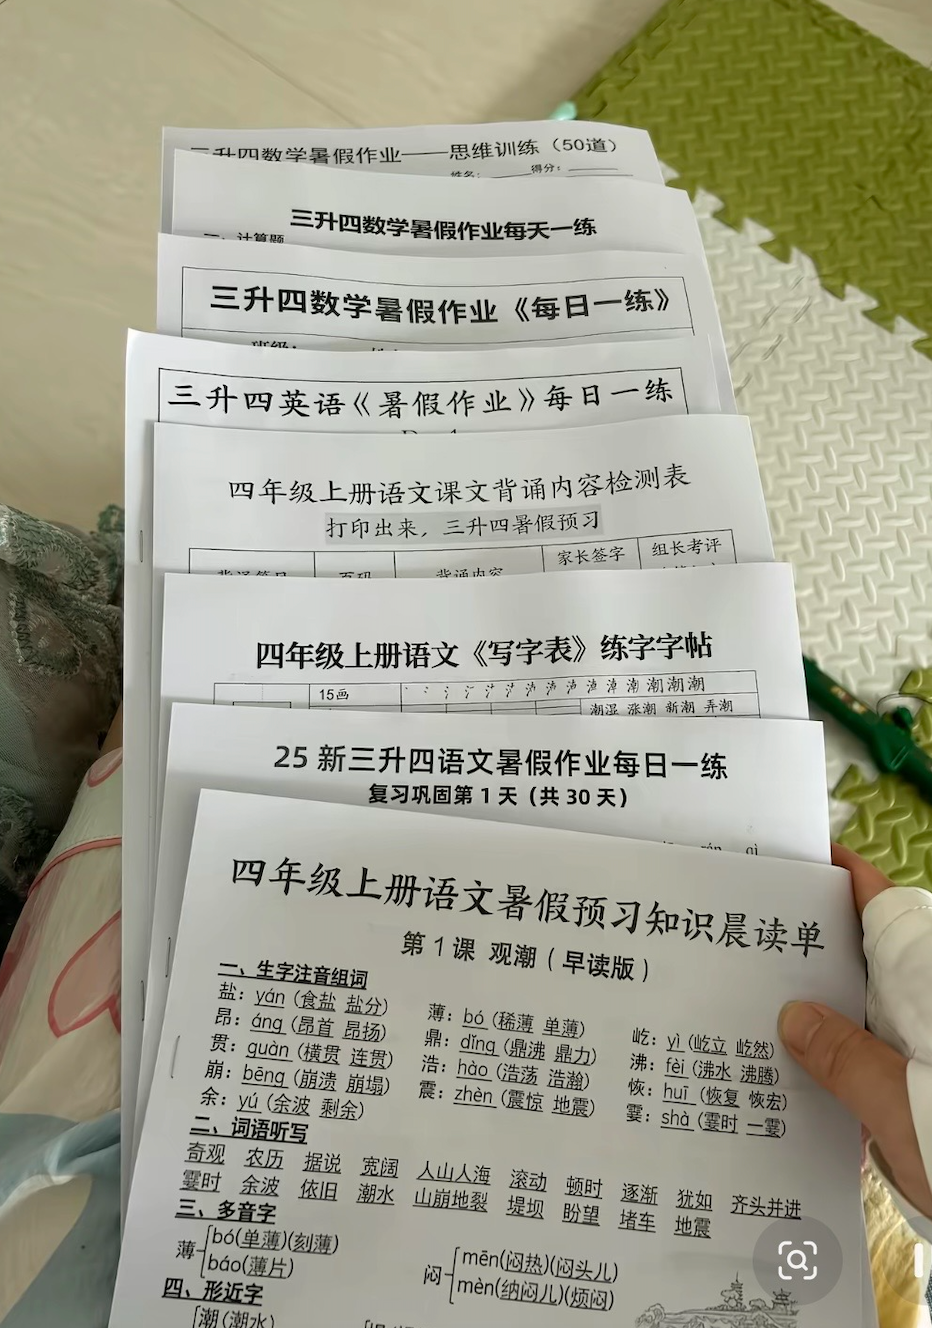 三升四数学暑假作业——思维训练（50道）
姓名：______ 得分：______
三升四数学暑假作业每天一练
一、计算题
三升四数学暑假作业《每日一练》
班级：
三升四英语《暑假作业》每日一练
四年级上册语文课文背诵内容检测表
打印出来，三升四暑假预习
背诵篇目 页码 背诵内容 家长签字 组长考评
四年级上册语文《写字表》练字字帖
15画 潮潮潮
潮湿 涨潮 新潮 弄潮
25 新三升四语文暑假作业每日一练
复习巩固第 1 天（共 30 天）
qì
四年级上册语文暑假预习知识晨读单
第 1 课 观潮（早读版）
一、生字注音组词
盐：yán（食盐 盐分） 薄：bó（稀薄 单薄） 屹：yì（屹立 屹然）
昂：áng（昂首 昂扬） 鼎：dǐng（鼎沸 鼎力） 沸：fèi（沸水 沸腾）
贯：guàn（横贯 连贯） 浩：hào（浩荡 浩瀚） 恢：huī（恢复 恢宏）
崩：bēng（崩溃 崩塌） 震：zhèn（震惊 地震） 霎：shà（霎时 一霎）
余：yú（余波 剩余）
二、词语听写
奇观 农历 据说 宽阔 人山人海 滚动 顿时 逐渐 犹如 齐头并进
霎时 余波 依旧 潮水 山崩地裂 堤坝 盼望 堵车 地震
三、多音字
薄 bó(单薄)(刻薄) 闷 mēn(闷热)(闷头儿)
báo(薄片) mèn(纳闷儿)(烦闷)
四、形近字
潮（潮水）